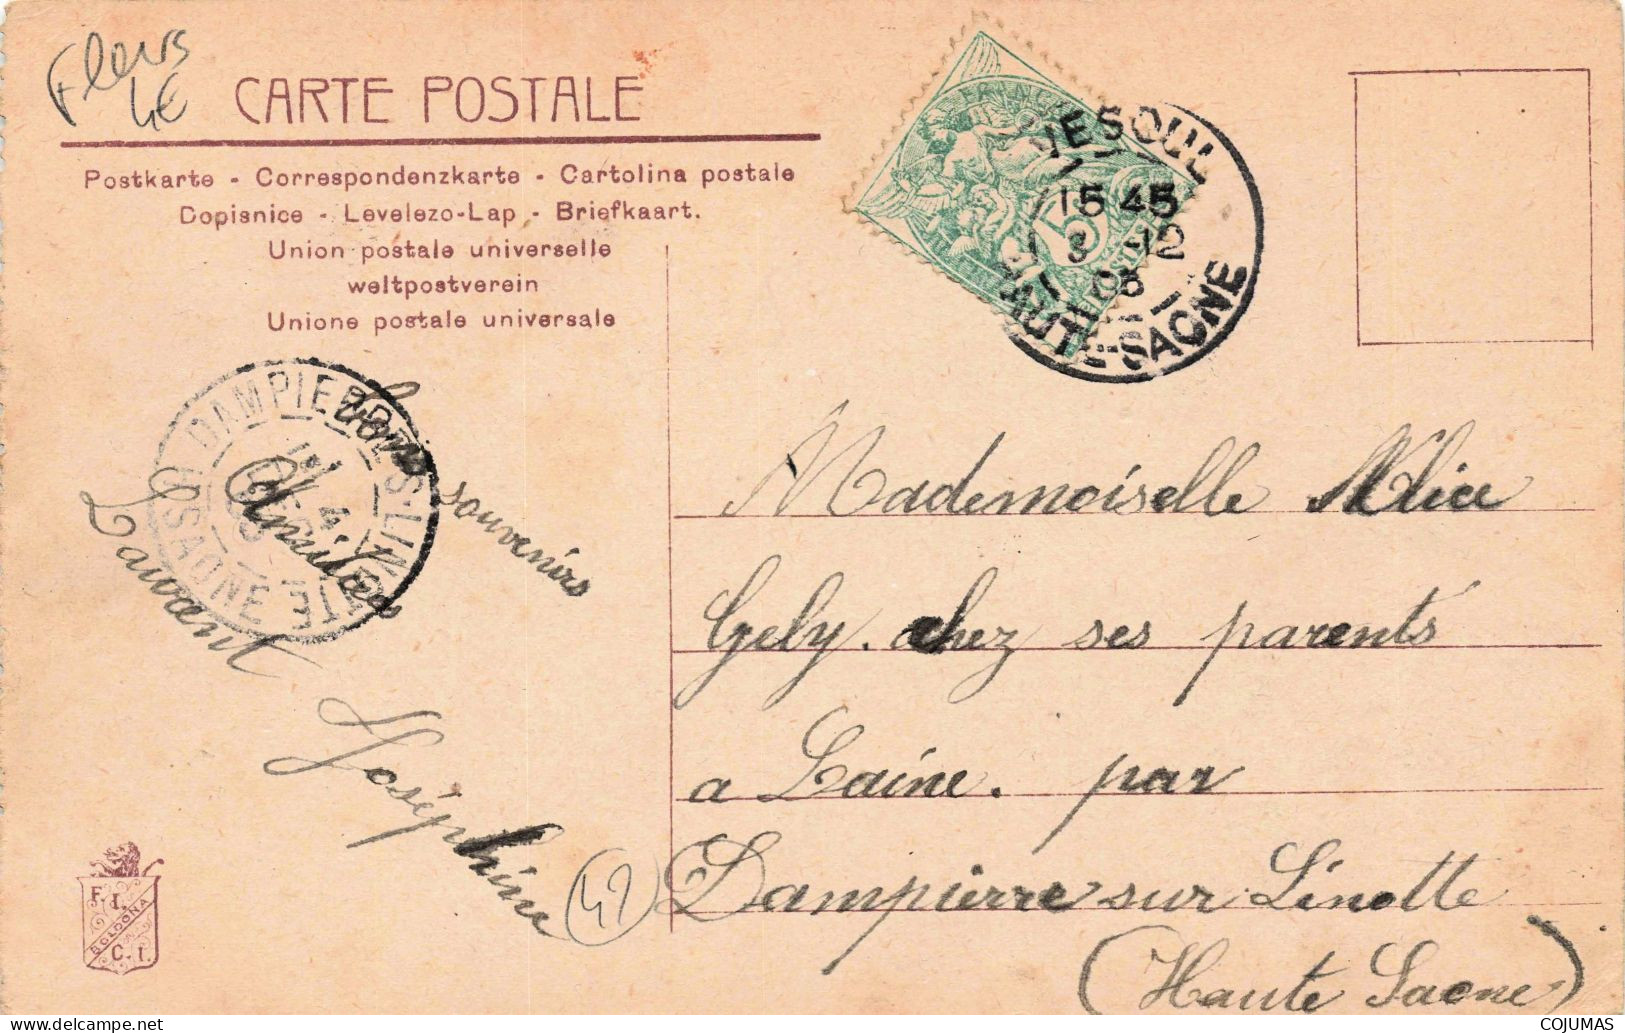 Fleurs
4€
CARTE POSTALE
Postkarte - Correspondenzkarte - Cartolina postale
Dopisnice - Levelezo-Lap - Briefkaart.
Union postale universelle
weltpostverein
Unione postale universale
FRANÇ
5
VESOUL
15 45
3 -12
08
HAUTE-SAONE
DAMPIERRE-S-LINOTTE
4
Hte SAONE
bons souvenirs
Amitiées
Laurent
Joséphine
42
Mademoiselle Alice
Gely. chez ses parents
a Laine. par
Dampierre sur Linotte
(Haute Saone)
F. I.
BOLOGNA
C. I.
COJUMAS